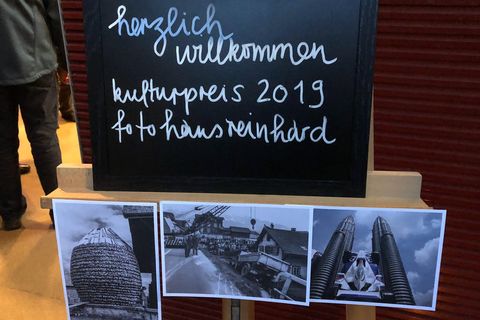 herzlich
willkommen
kulturpreis 2019
foto hans reinhard